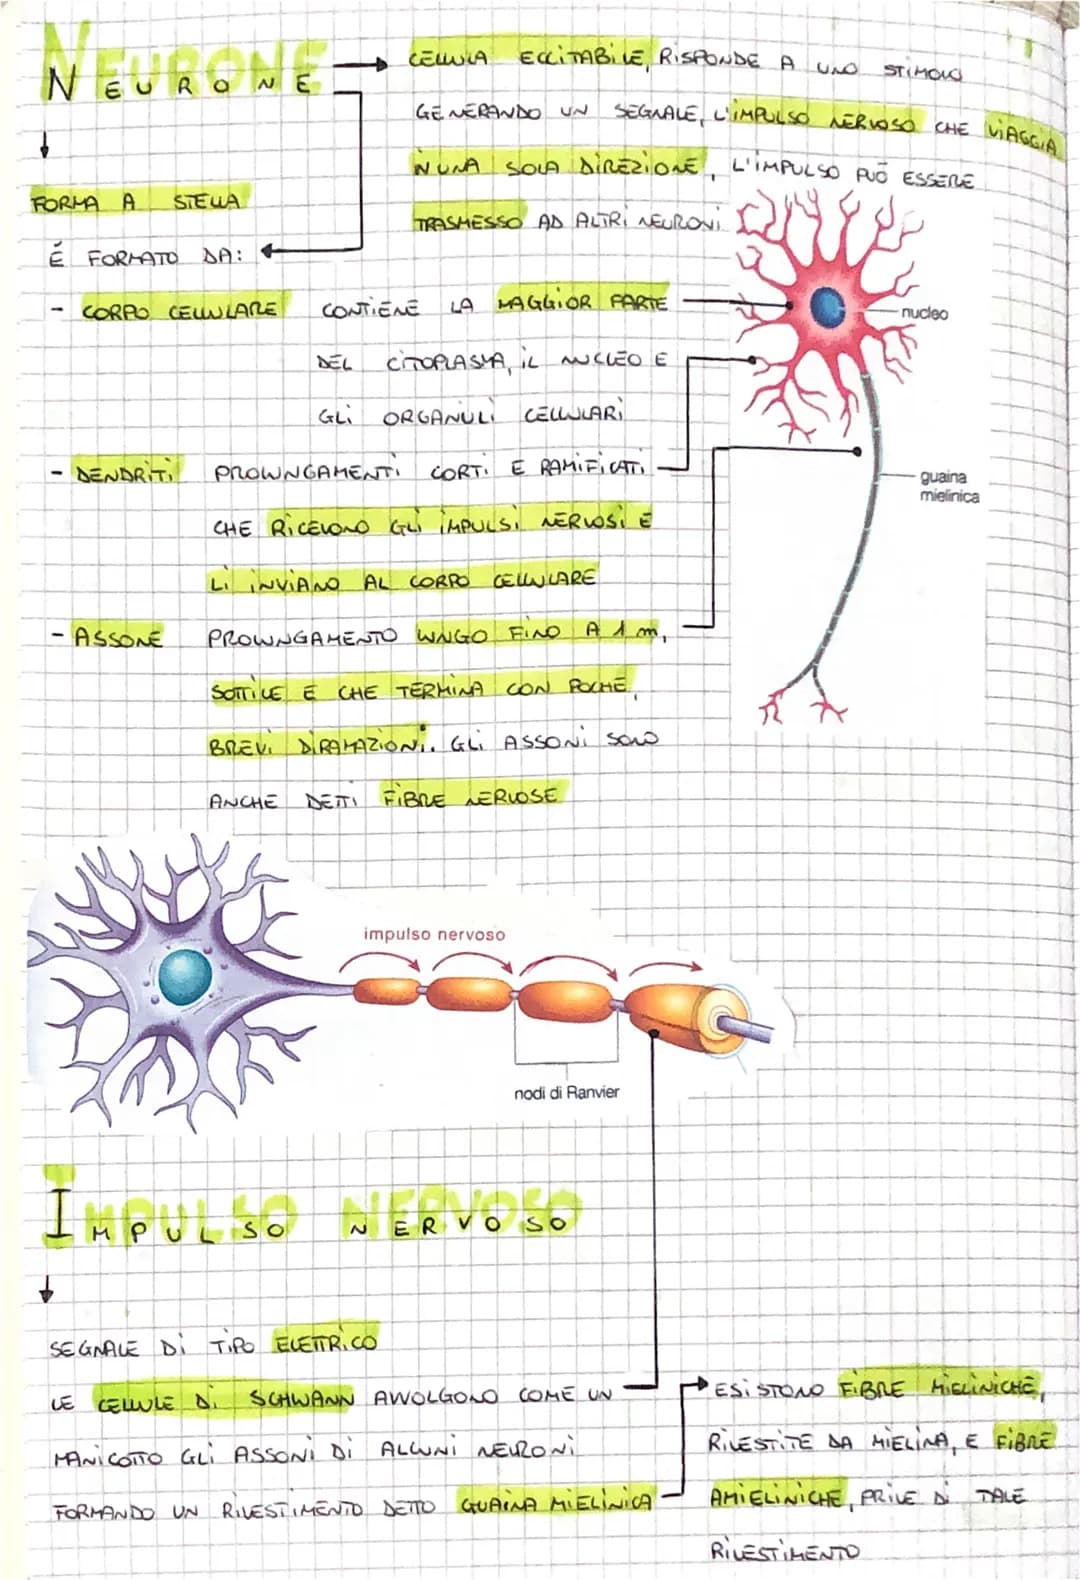 NEURONE
CELLULA ECCITABILE, RISPONDE A UNO STIMOLO
GENERANDO UN SEGNALE, L'IMPULSO NERVOSO CHE VIAGGIA
IN UNA SOLA DIREZIONE, L'IMPULSO PUÒ ESSERE
TRASMESSO AD ALTRI NEURONI
FORMA A STELLA
É FORMATO DA:
- CORPO CELLULARE CONTIENE LA MAGGIOR PARTE
DEL CITOPLASMA, IL NUCLEO E
GLI ORGANULI CELLULARI
nucleo
- DENDRITI PROLUNGAMENTI CORTI E RAMIFICATI
CHE RICEVONO GLI IMPULSI NERVOSI E
LI INVIANO AL CORPO CELLULARE
guaina
mielinica
- ASSONE PROLUNGAMENTO LUNGO FINO A 1 m,
SOTTILE E CHE TERMINA CON POCHE,
BREVI DIRAMAZIONI. GLI ASSONI SONO
ANCHE DETTI FIBRE NERVOSE
impulso nervoso
nodi di Ranvier
IMPULSO NERVOSO
SEGNALE DI TIPO ELETTRICO
LE CELLULE DI SCHWANN AVVOLGONO COME UN
MANICOTTO GLI ASSONI DI ALCUNI NEURONI
FORMANDO UN RIVESTIMENTO DETTO GUAINA MIELINICA
ESISTONO FIBRE MIELINICHE,
RIVESTITE DA MIELINA, E FIBRE
AMIELINICHE, PRIVE DI TALE
RIVESTIMENTO